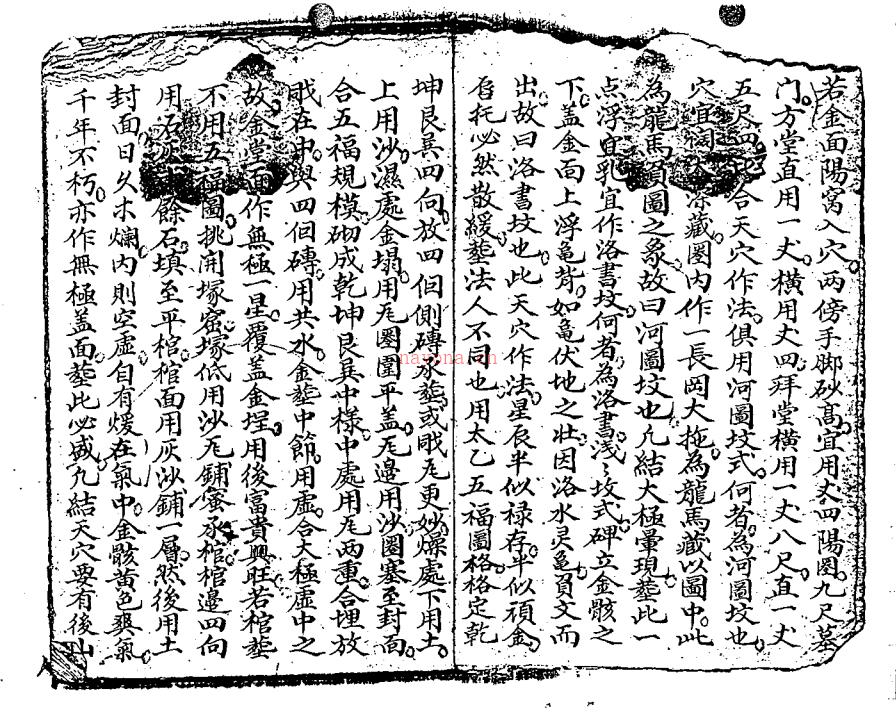 若金面陽窩入穴兩傍手脚砂高宜用丈四陽圈九尺墓
门方堂直用一丈橫用丈四拜堂橫用一丈八尺直一丈
五尺四合天穴作法俱用河圖坟式何者為河圖坟也
穴宜闊深藏圈内作一長岡大拖為龍馬藏以圖中此
為龍馬負圖之象故曰河圖坟也凢結大極暈現塟此一
点浮宜乳宜作洛書坟何者為洛書浅浅坟式碑立金骸之
下盖金面上浮龜背如龜伏地之壯因洛水灵龜負文而
出故曰洛書坟也此天穴作法星辰半似祿存半似頑金
唇托必然散緩塟法人不同也用太乙五福圖格格定乾
坤艮巽四向放四個側磚承塟或戝瓦更妙燥處下用土
上用沙濕處金塌用瓦圈圍平盖瓦邉用沙圈塞至封面
合五福規模砌成乾坤艮巽中樣中處用瓦兩重合埋放
戝在中與四個磚用共水金塟中節用虛合大極虛中之
故金堂面作無極一星覆盖金埕用後富貴興旺若棺塟
不用五福圖挑開塚窰塚低用沙瓦鋪蜜承棺棺邉四向
用石灰餘石填至平棺棺面用灰沙鋪一層然後用土
封面日久木爛内則空虛自有煖在氣中金骸黄色爽氣
千年不朽亦作無極盖面塟此必城凢結天穴要有後山
nayona.cn